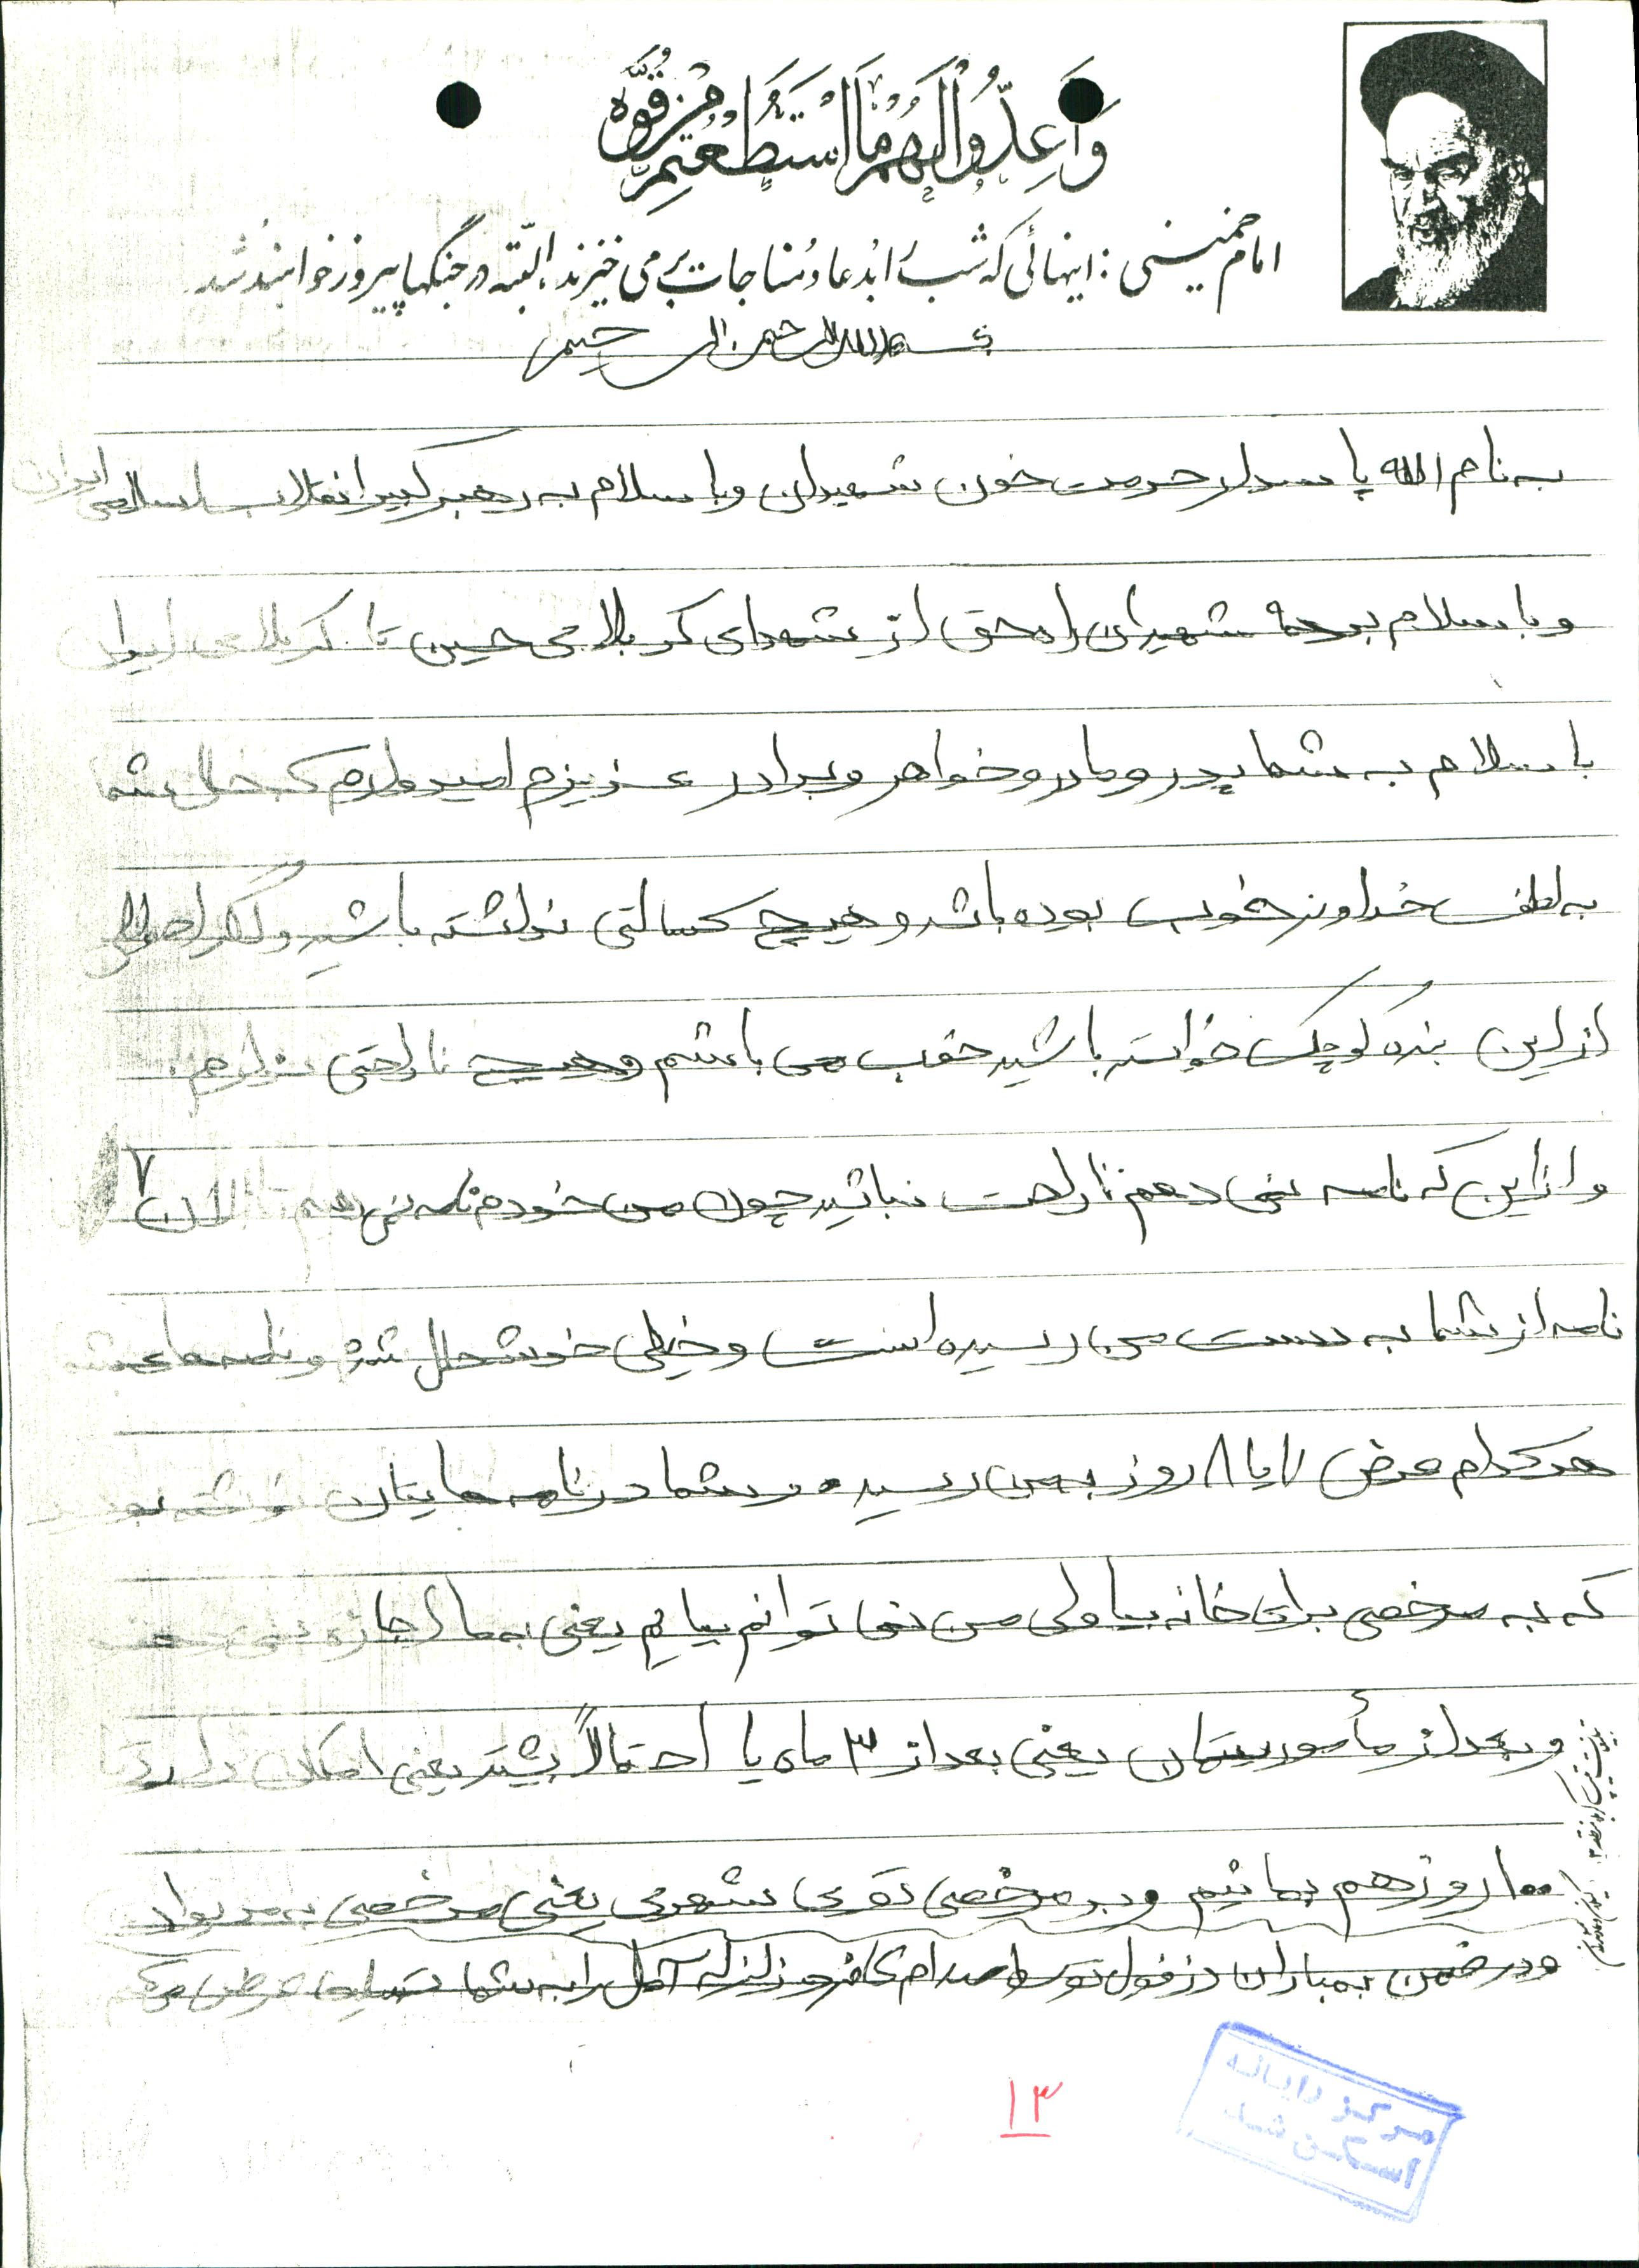 وَأَعِدُّوا لَهُمْ مَا اسْتَطَعْتُمْ مِنْ قُوَّةٍ
امام خمینی: اینهائی که شب را بدعا و مناجات برمی خیزند، البته در جنگها پیروز خواهند شد
بسم الله الرحمن الرحیم
به نام الله پاسدار حرمت خون شهیدان و با سلام به رهبر کبیر انقلاب اسلامی ایران
و با سلام به همه شهیدان راه حق از شهدای کربلای حسین تا کربلای ایران
با سلام به شما پدر و مادر و خواهر و برادر عزیزم امیدوارم که حال شما
به لطف خداوند خوب بوده باشد و هیچ کسالتی نداشته باشید و اگر احوالی
از این بنده کوچک خواسته باشید خوب می باشم و هیچ ناراحتی ندارم
و از این که نامه نمی دهم ناراحت نباشید چون من خودم نامه نمی دهم تا الان ۷
نامه از شما به دست من رسیده است و خیلی خوشحال شدم و نامه های شما
هر کدام عرض ۷ یا ۸ روز به من رسیده و شما در نامه هایتان نوشته بودید
که به مرخصی برای خانه بیا ولی من نمی توانم بیایم یعنی به ما اجازه نمی دهند
و بعد از مأموریتمان یعنی بعد از ۳ ماه یا احتمالاً بیشتر یعنی امکان دارد تا
۱۰۰ روز هم بمانیم و به مرخصی توی شهری یعنی مرخصی به مریوان
و در ضمن بمباران دزفول توسط صدام کافر و را به شما تسلیت عرض می کنم
۱۳
مرکز رایانه
اسکن شد